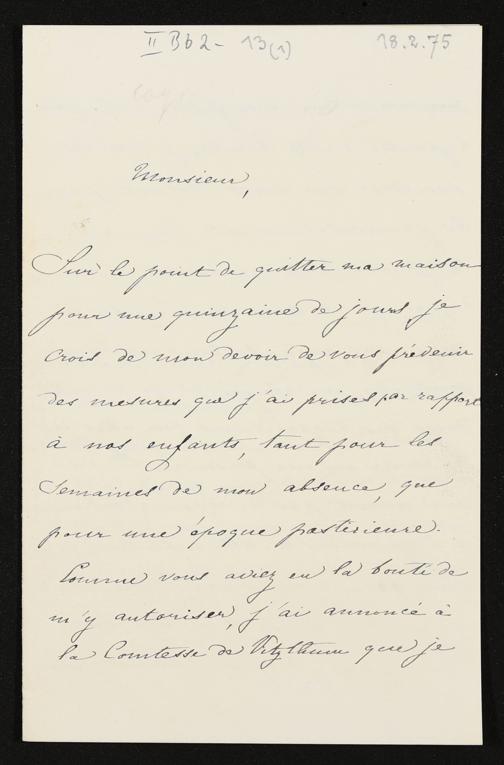 II Bb2- 13(1) 18.2.75
Monsieur,
Sur le point de quitter ma maison
pour une quinzaine de jours, je
crois de mon devoir de vous prévenir
des mesures que j'ai prises par rapport
à nos enfants, tant pour les
semaines de mon absence, que
pour une époque postérieure.
Comme vous aviez eu la bonté de
m'y autoriser, j'ai annoncé à
la Comtesse de Vitzthum que je